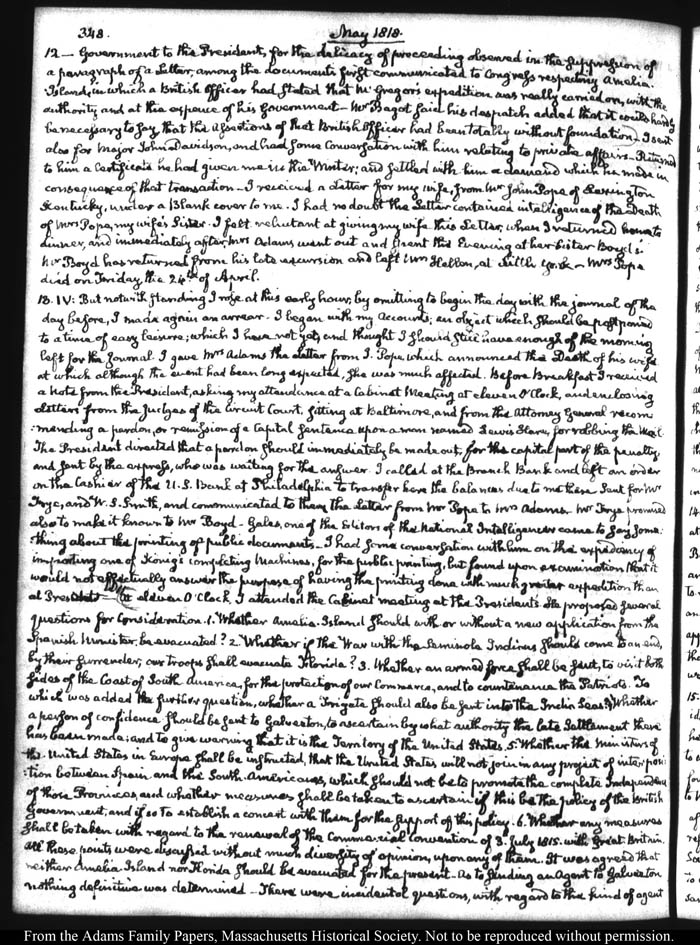 348.
May 1818.
12 — Government to the President, for the delicacy of proceeding observed in the suppression of
a paragraph of a Letter, among the documents first communicated to Congress respecting Amelia
Island, in which a British Officer had stated that McGregor's expedition was really carried on, with the
authority and at the expence of his Government — Mr Bagot said his despatch added that it could hardly
be necessary to say that the assertions of that British Officer had been totally without foundation — I sent
also for Major John Davidson, and had some Conversation with him relating to private affairs — Returned
to him a Certificate he had given me in the Winter; and settled with him a demand which he made in
consequence of that transaction — I received a Letter for my wife, from Mr John Pope of Lexington
Kentucky, under a Blank cover to me. I had no doubt the Letter contained intelligence of the Death
of Mrs Pope, my wife's Sister. I felt reluctant at giving my wife this Letter, when I returned home to
dinner, and immediately after, Mrs Adams went out and spent the Evening at her Sister Boyd's
Mr Boyd has returned from his late excursion and left Mrs Hellen, at — Mrs Pope
died on Friday the 24th of April.
13. IV: But notwithstanding I rose at this early hour, by omitting to begin the day with the journal of the
day before, I made again an arrear. I began with my Accounts; an object which should be postponed
to a time of easy leisure; which I have not yet, and thought I should still have enough of the morning
left for the Journal. I gave Mrs Adams the Letter from J. Pope, which announced the Death of his wife
at which although the event had been long expected, she was much affected. Before Breakfast I received
a Note from the President, asking my attendance at a Cabinet Meeting at eleven O'Clock, and enclosing
Letters from the Judges of the Circuit Court, sitting at Baltimore, and from the Attorney General recom
-mending a pardon, or remission of a Capital Sentence upon a man named Lewis Hare, for robbing the Mail.
The President directed that a pardon should immediately be made out, for the capital part of the penalty,
and sent by the express, who was waiting for the answer. I called at the Branch Bank and left an order
on the Cashier of the U.S. Bank at Philadelphia to transfer here the balances due to me there. Sent for Mr
Frye, and W. S. Smith, and communicated to them the Letter from Mr Pope to Mrs Adams. Mr Frye promised
also to make it known to Mr Boyd — Gales, one of the Editors of the National Intelligencer came to say some-
-thing about the printing of public documents — I had some conversation with him on the expediency of
importing one of König's compleating Machines, for the public printing, but found upon examination that it
would not effectually answer the purpose of having the printing done with much greater expedition than
at Present — At eleven O'Clock, I attended the Cabinet meeting at the President's. He proposed several
questions for Consideration. 1. Whether Amelia Island should with or without a new application from the
Spanish Minister, be evacuated? 2. Whether if the War with the Seminole Indians should come to an end,
by their surrender, our troops shall evacuate Florida? 3. Whether an armed force shall be sent, to visit both
sides of the Coast of South America, for the protection of our Commerce, and to countenance the Patriots. To
which was added the further question, whether a Frigate should also be sent into the Indian Seas? Whether
a person of confidence should be sent to Galveston, to ascertain by what authority the late Settlement there
has been made; and to give warning that it is the Territory of the United States. 5. Whether the Ministers of
the United States in Europe shall be instructed, that the United States will not join in any project of interposi
-tion between Spain and the South-Americans, which should not be to promote the complete Independence
of those Provinces, and whether measures shall be taken to ascertain if this be the policy of the British
Government, and if so to establish a concert with them for the support of this policy. 6. Whether any measures
shall be taken with regard to the renewal of the Commercial Convention of 3. July 1815. with Great-Britain.
All these points were discussed without much diversity of opinion, upon any of them. It was agreed that
neither Amelia Island nor Florida should be evacuated for the present — As to sending an Agent to Galveston
nothing definitive was determined — There were incidental questions, with regard to the kind of agent
From the Adams Family Papers, Massachusetts Historical Society. Not to be reproduced without permission.